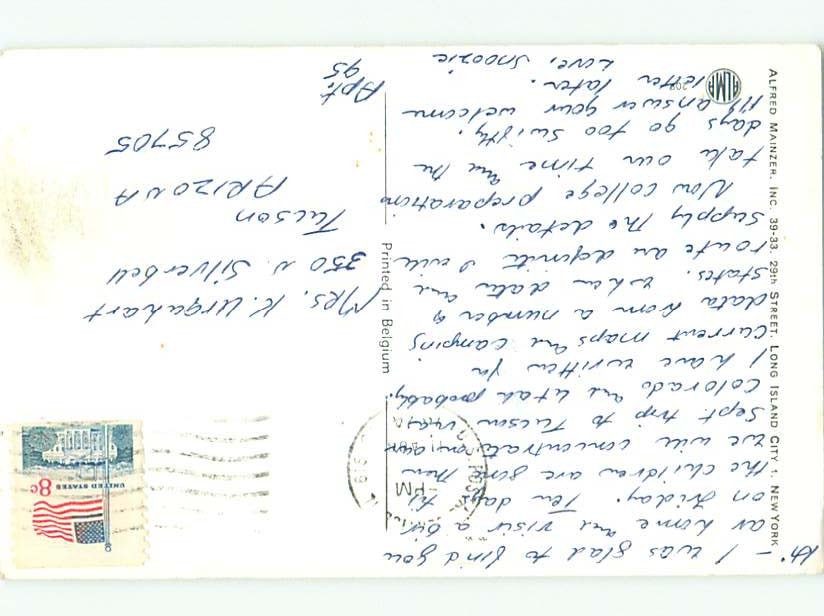 Hi –
I was glad to find you
at home and visit a bit
on Friday. Ten days til
the children are gone then
we will concentrate on our
Sept trip to Tucson via
Colorado and Utah probably.
I have written for
current maps and camping
data from a number of
states. When dates and
route are definite I will
supply the details.
Now college preparations
take our time and the
days go too swiftly.
I'll answer your welcome
letter later.
Love, Snoozie
Mrs. K. Urquhart
350 N. Silverbell
Tucson
ARIZONA
85705
Apt.
95
Printed in Belgium
ALFRED MAINZER, INC. 39-33, 29th STREET, LONG ISLAND CITY 1, NEW YORK
ALMA
UNITED STATES 8c
PM